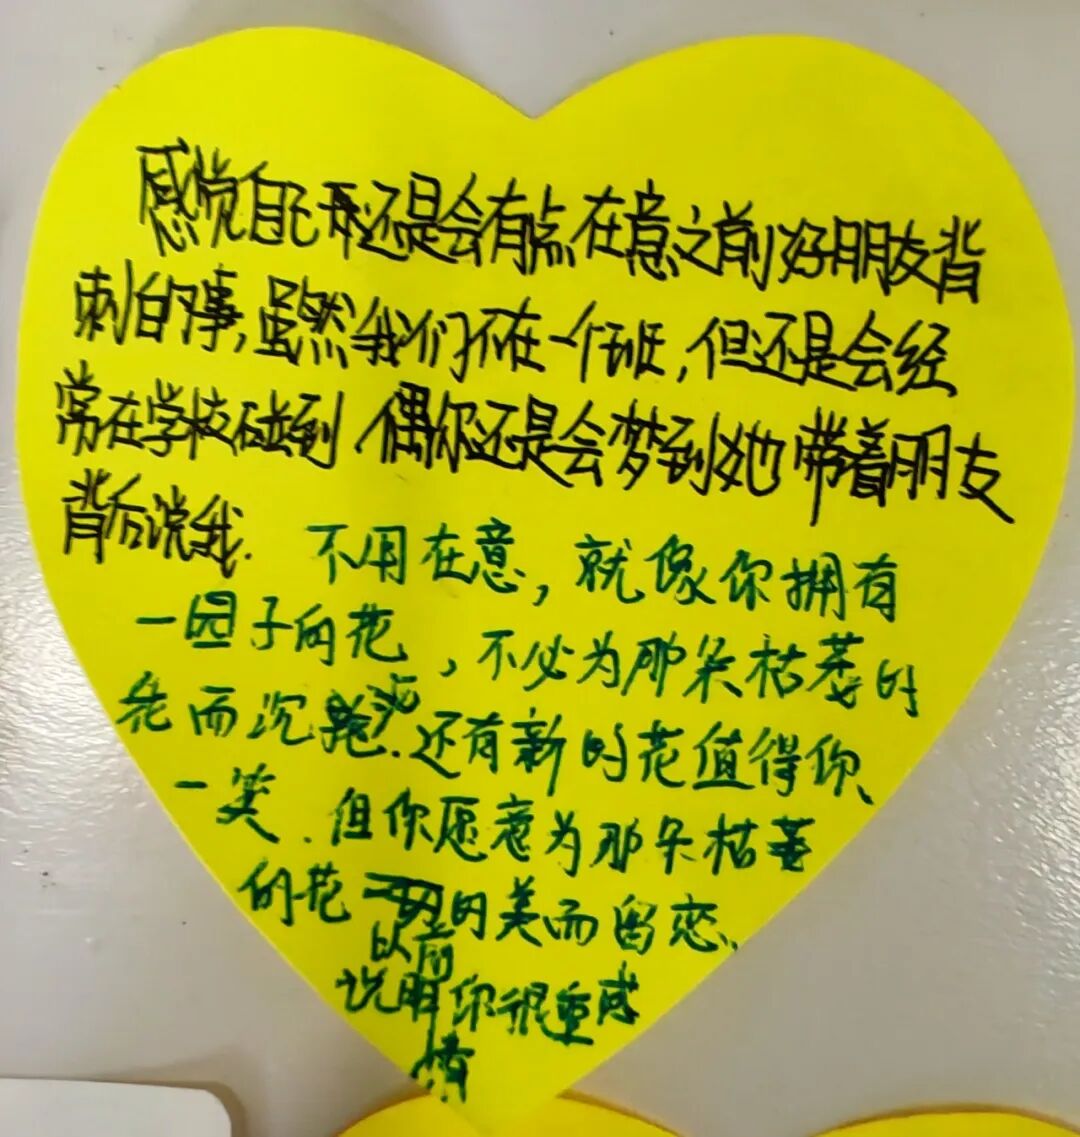 感觉自己还是会有点在意之前好朋友背
刺的事,虽然我们不在一个班,但还是会经
常在学校碰到.偶尔还是会梦到她带着朋友
背后说我.
不用在意,就像你拥有
一园子的花,不必为那朵枯萎的
花而沉.还有新的花值得你
一笑.但你愿意为那朵枯萎
的花以前的美而留恋.
说明你很重感
情